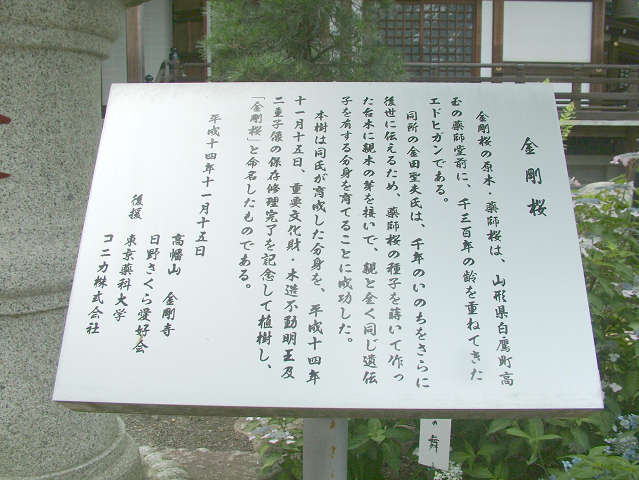 金剛桜
金剛桜の原木・薬師桜は、山形県白鷹町高
玉の薬師堂前に、千三百年の齢を重ねてきた
エドヒガンである。
同所の金田聖夫氏は、千年のいのちをさらに
後世に伝えるため、薬師桜の種子を蒔いて作っ
た台木に親木の芽を接いで、親と全く同じ遺伝
子を有する分身を育てることに成功した。
本樹は同氏が育成した分身を、平成十四年
十一月十五日、重要文化財・木造不動明王及
二童子像の保存修理完了を記念して植樹し、
「金剛桜」と命名したものである。
平成十四年十一月十五日
後援
高幡山 金剛寺
日野さくら愛好会
東京薬科大学
コニカ株式会社
の舞